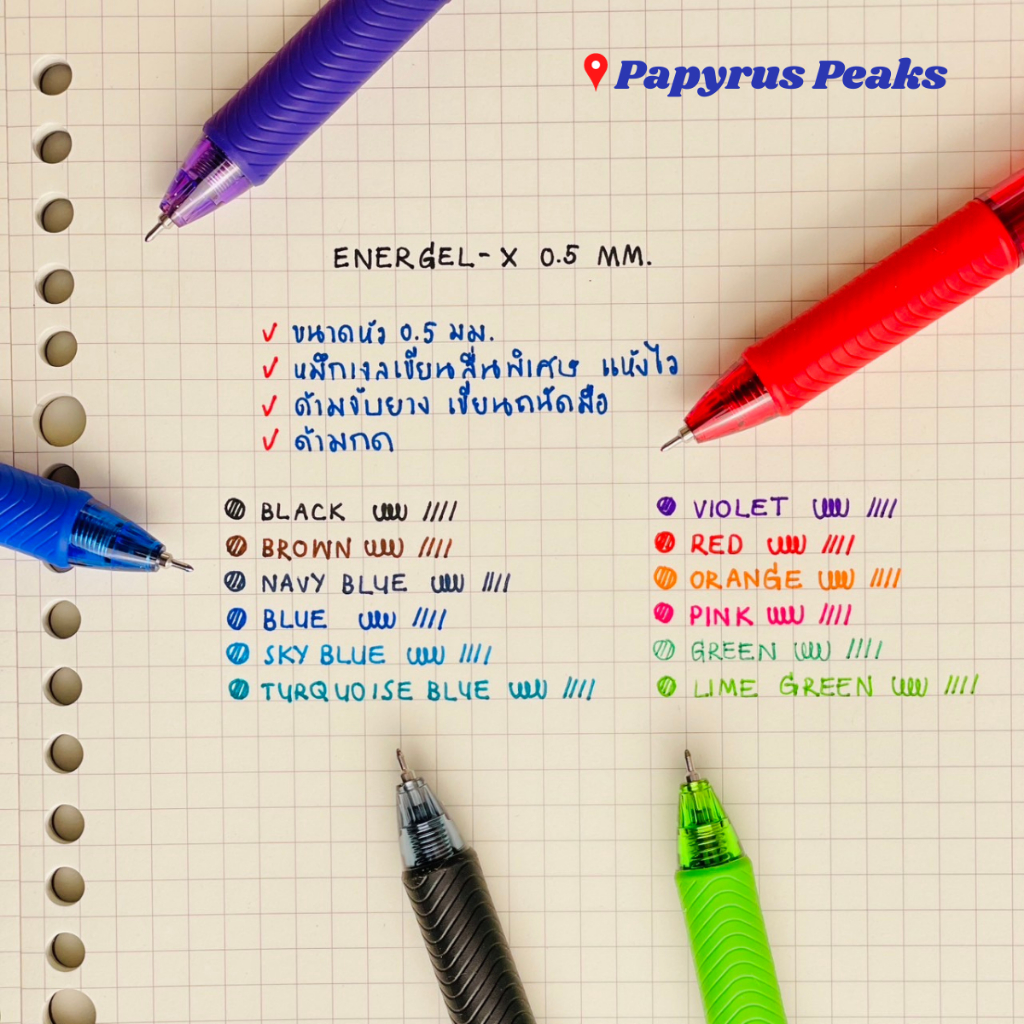 Papyrus Peaks
ENERGEL-X 0.5 MM.
✓ ขนาดหัว 0.5 มม.
✓ หมึกเจลเขียนลื่นพิเศษ แห้งไว
✓ ด้ามจับยาง เขียนถนัดมือ
✓ ด้ามกด
BLACK
BROWN
NAVY BLUE
BLUE
SKY BLUE
TURQUOISE BLUE
VIOLET
RED
ORANGE
PINK
GREEN
LIME GREEN